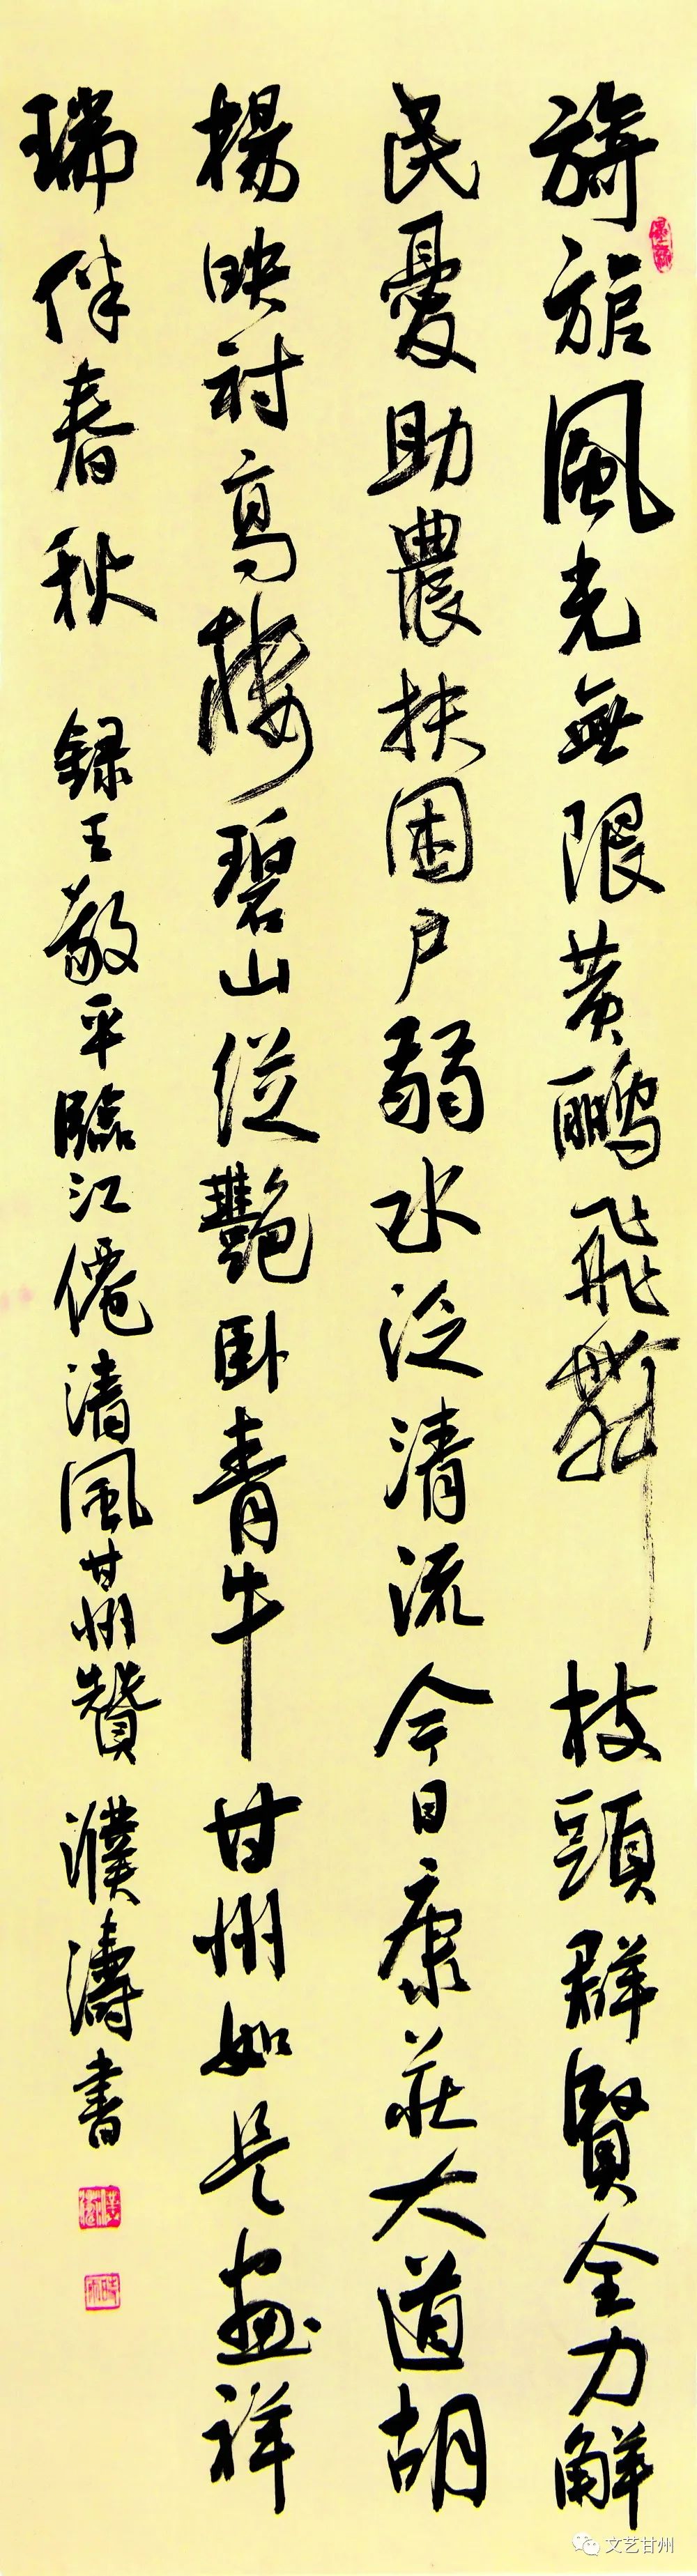 旖旎風光無限黄鸝飛舞枝頭群賢全力解
民憂助農扶困户弱水泛清流今日康莊大道胡
楊映衬高樓碧山绽艷卧青牛甘州如是畫祥
瑞伴春秋 録王敬平臨江僊清風甘州贊 濮濤書
文艺甘州